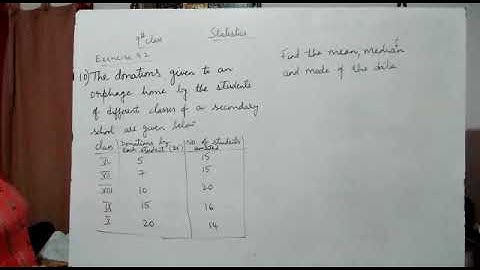 9th class
Statistics
Exercise 9.2
10) The donations given to an
orphage home by the students
of different classes of a secondary
school are given below
class Donations by each student (Rs) No. of students donated
VI 5 15
VII 7 15
VIII 10 20
IX 15 16
X 20 14
Find the mean, median
and mode of the data